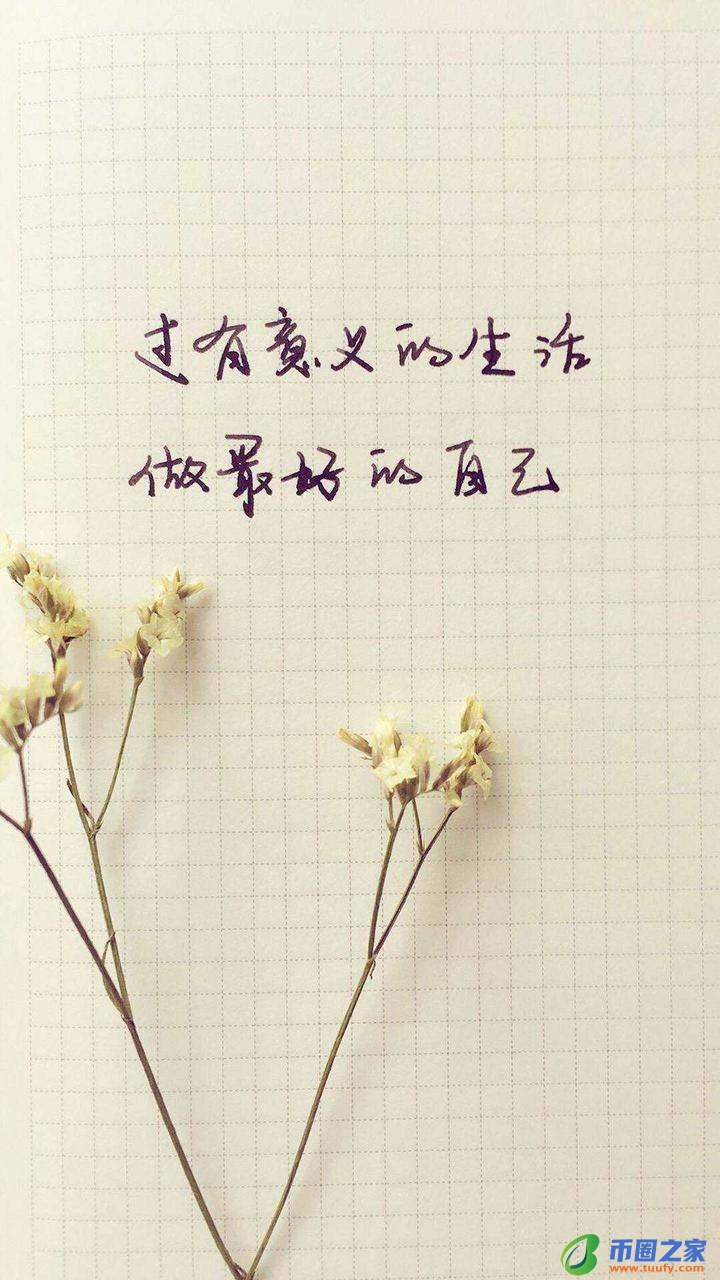 过有意义的生活
做最好的自己
币圈之家
www.tuufy.com